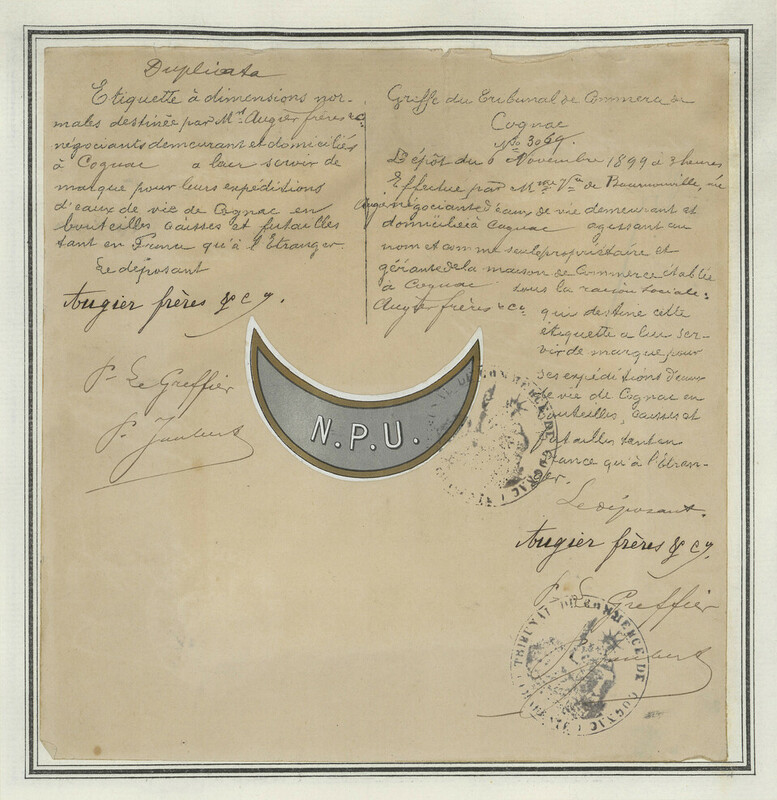 Duplicata
Etiquette à dimensions nor-
males destinée par Mrs Augier frères & Co
négociants demeurant et domiciliés
à Cognac a leur servir de
marque pour leurs expéditions
d'eaux de vie de Cognac en
bouteilles caisses et futailles
tant en France qu'à l'Etranger.
Le déposant
Augier frères & Cy.
P. Le Greffier
P. Joubert
Greffe du Tribunal de Commerce de
Cognac
No 3069.
Dépôt du Novembre 1899 à 3 heures
Effectué par Mme Vve de Bournonville, née
Augier négociante d'eaux de vie demeurant et
domiciliée à Cognac agissant au
nom et comme seule propriétaire et
gérante de la maison de Commerce établie
à Cognac sous la raison sociale:
Augier frères & Co. qui destine cette
étiquette a leur ser-
vir de marque pour
ses expéditions d'eaux
de vie de Cognac en
bouteilles, caisses et
futailles tant en
France qu'à l'Etran-
ger.
N.P.U.
TRIBUNAL DE COMMERCE DE COGNAC
Le déposant.
Augier frères & Cy.
P. Le Greffier
P. Joubert
TRIBUNAL DE COMMERCE DE COGNAC (CHARENTE)